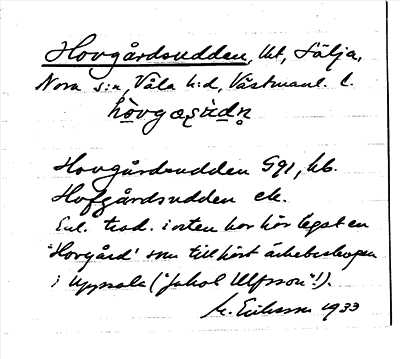 Hovgårdsudden, Ut, Sälja,
Nora s:n, Våla h:d, Västmanl. l.
Hovgårdsudden G91, hb.
Hofgårdsudden ek.
Enl. trad. i orten har här legat en
'Hovgård' som tillhört ärkebiskopen
i Uppsala ("Jakob Ulfsson"!).
M. Eriksson 1933